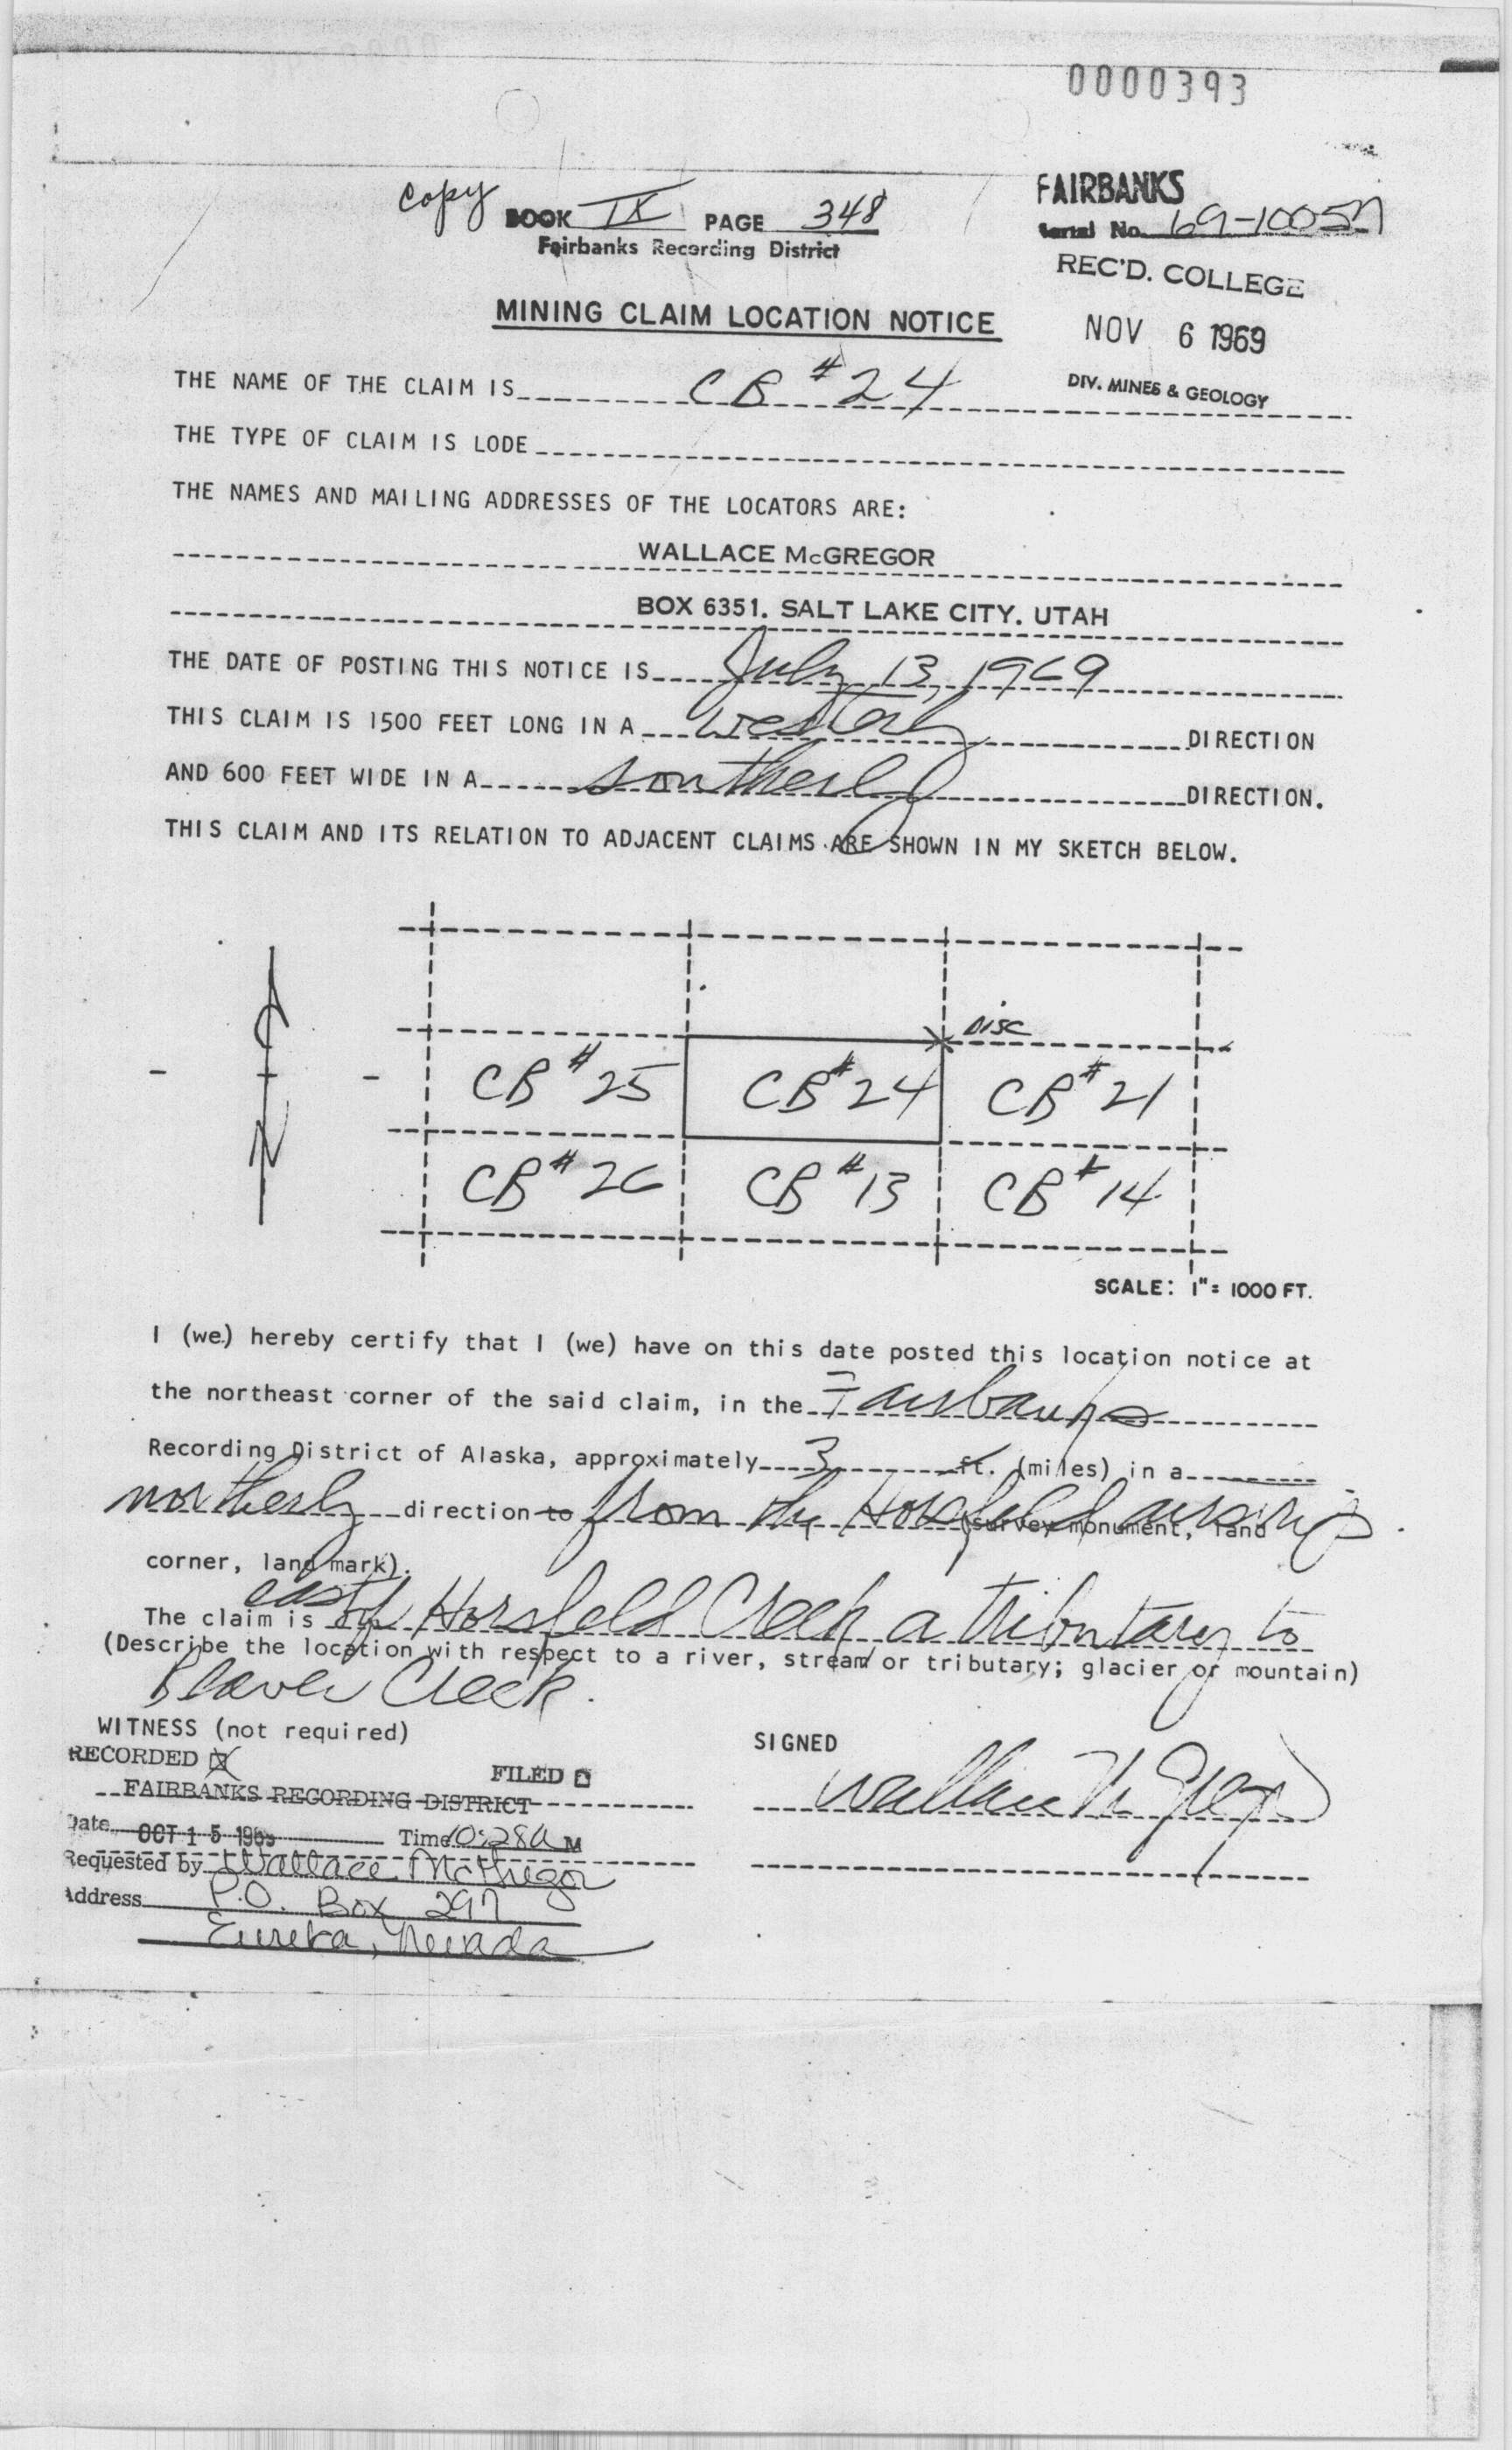 0000393
copy
BOOK IX PAGE 348
Fairbanks Recording District
FAIRBANKS
Serial No. 69-10057
REC'D. COLLEGE
NOV 6 1969
DIV. MINES & GEOLOGY
MINING CLAIM LOCATION NOTICE
THE NAME OF THE CLAIM IS CB #24
THE TYPE OF CLAIM IS LODE
THE NAMES AND MAILING ADDRESSES OF THE LOCATORS ARE:
WALLACE McGREGOR
BOX 6351. SALT LAKE CITY. UTAH
THE DATE OF POSTING THIS NOTICE IS July 13, 1969
THIS CLAIM IS 1500 FEET LONG IN A westerly DIRECTION
AND 600 FEET WIDE IN A southerly DIRECTION.
THIS CLAIM AND ITS RELATION TO ADJACENT CLAIMS ARE SHOWN IN MY SKETCH BELOW.
DISC
CB #25 CB #24 CB #21
CB #26 CB #13 CB #14
SCALE: 1" = 1000 FT.
I (we) hereby certify that I (we) have on this date posted this location notice at
the northeast corner of the said claim, in the Fairbanks
Recording District of Alaska, approximately 3 ft. (miles) in a
northerly direction to from the Horsfeld airstrip (survey monument, land
corner, land mark).
The claim is east of Horsfeld Creek a tributary to
(Describe the location with respect to a river, stream or tributary; glacier or mountain)
Beaver Creek.
WITNESS (not required)
SIGNED
RECORDED FILED
FAIRBANKS RECORDING DISTRICT
Wallace McGregor
Date OCT 15 1969 Time 10:28 A M
Requested by Wallace McGregor
Address P.O. Box 297
Eureka, Nevada